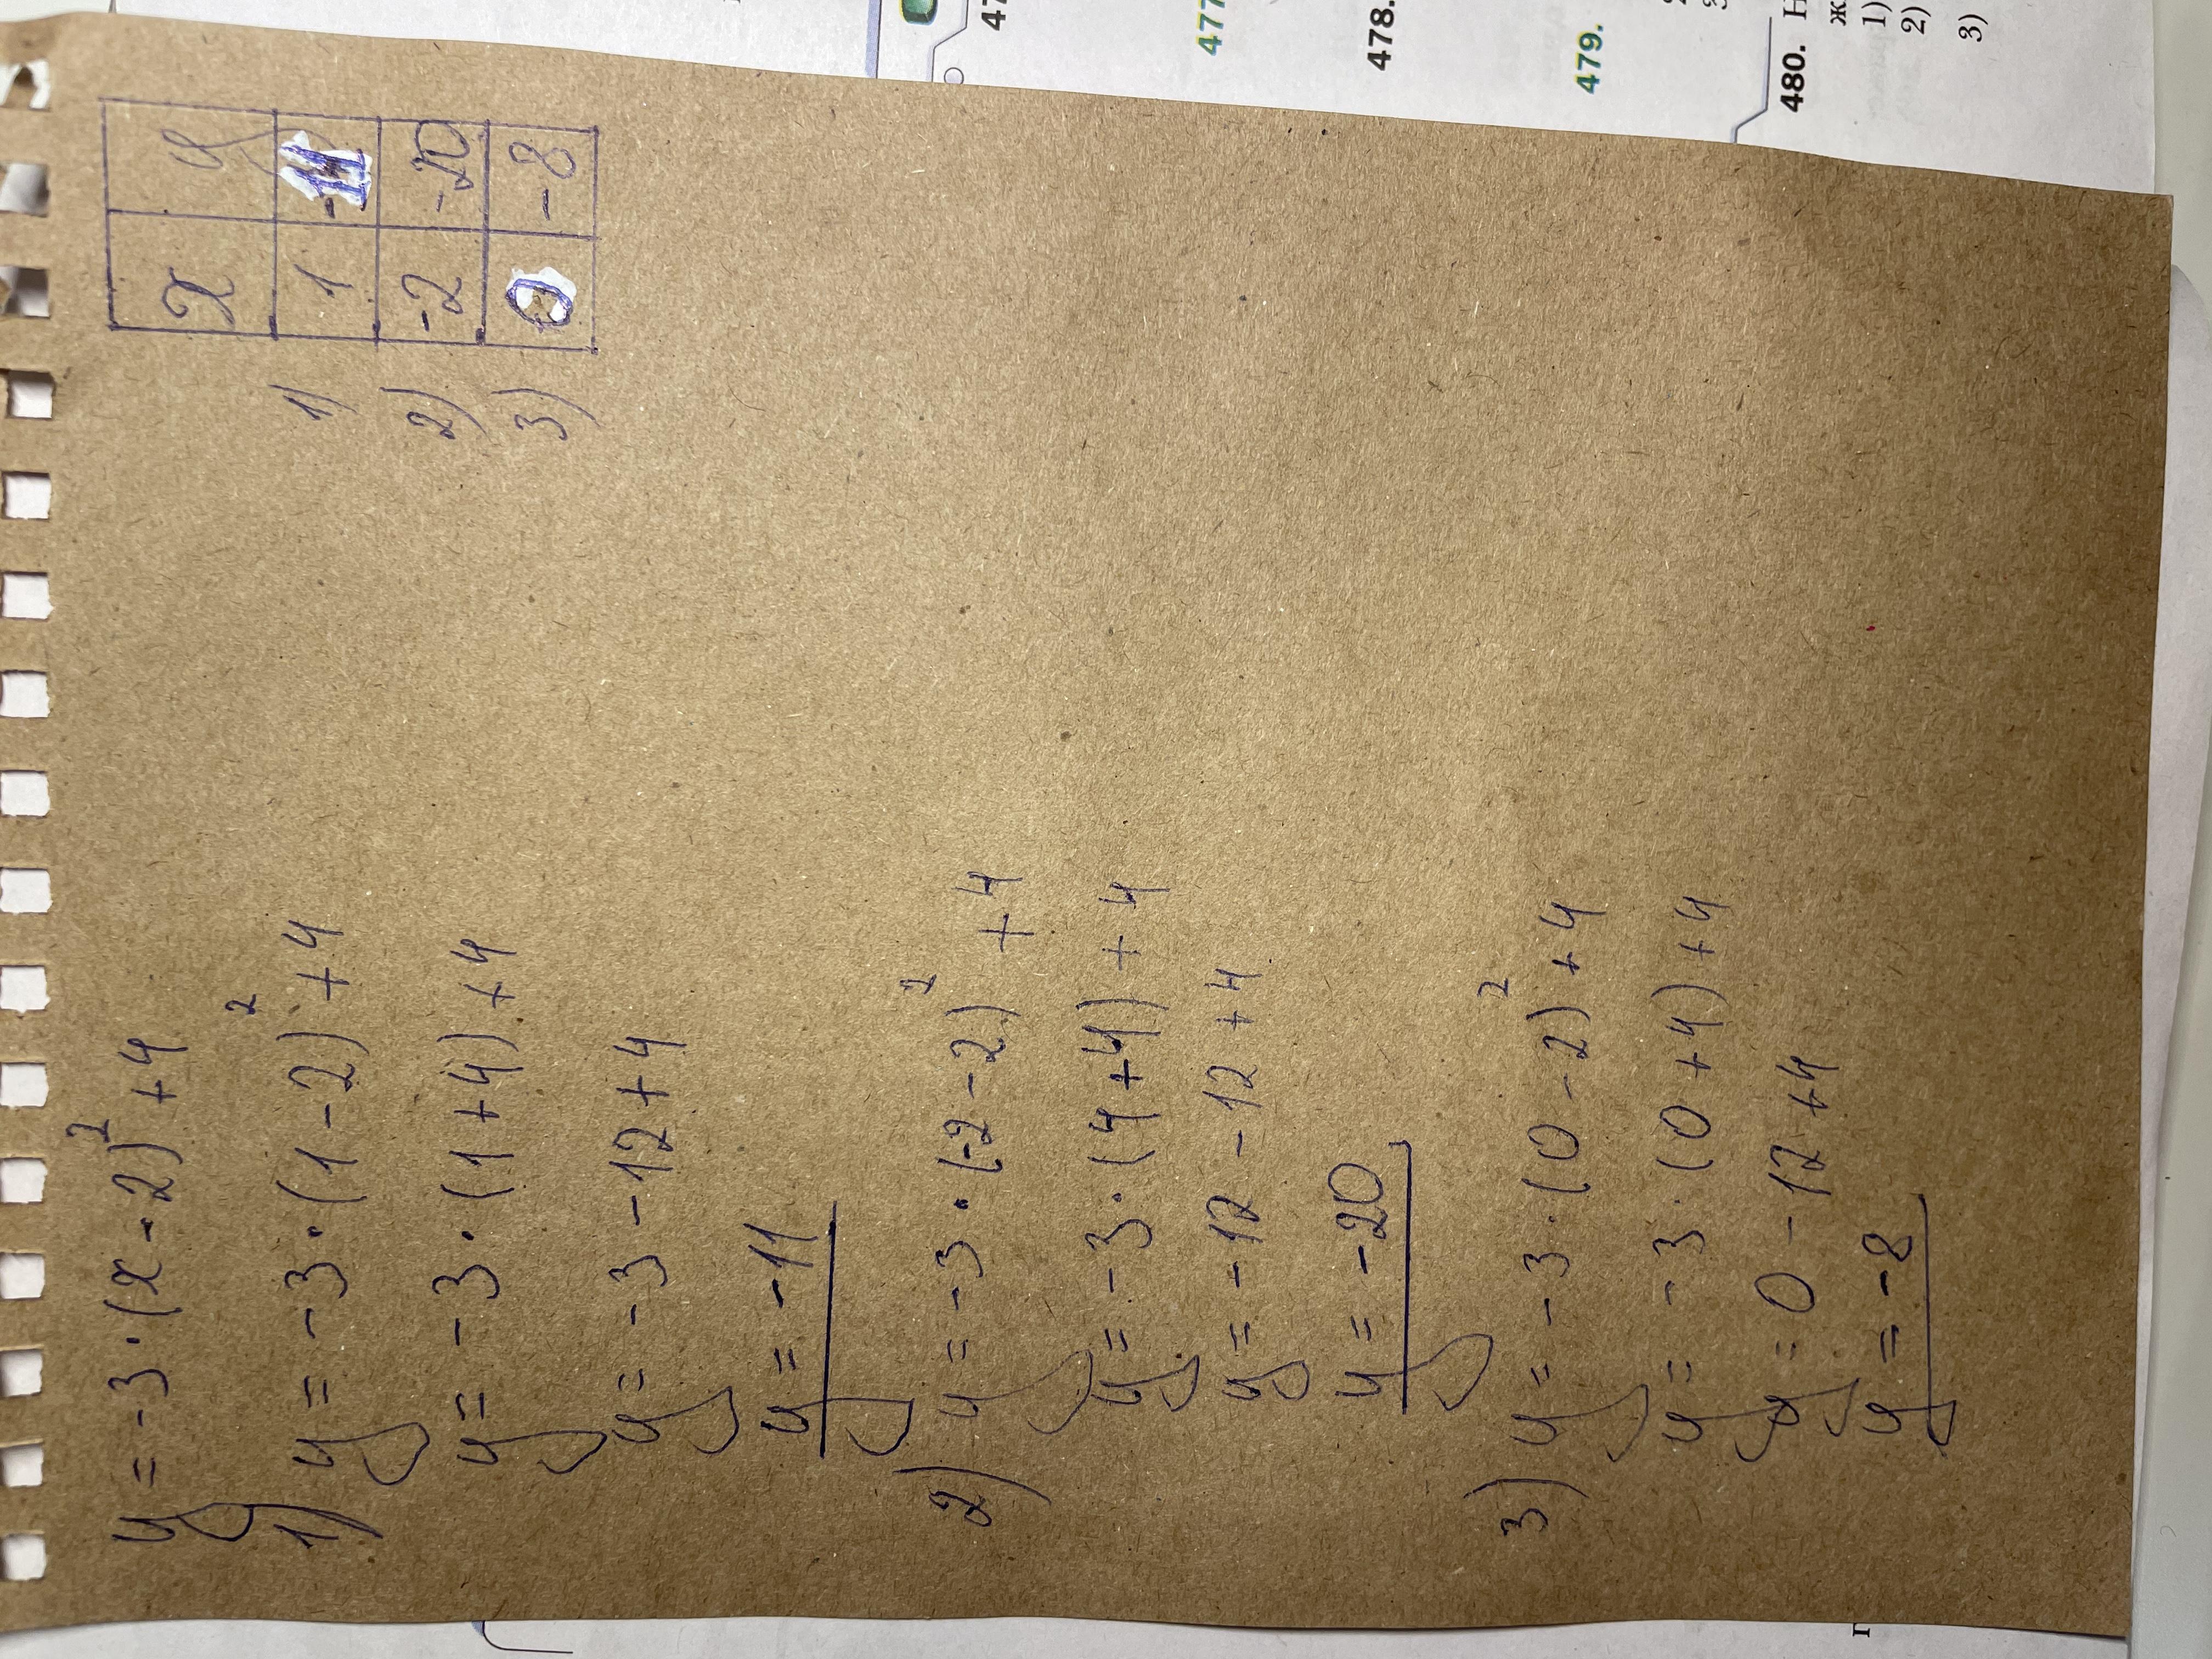 y = -3·(x-2)² + 4
1) y = -3·(1-2)² + 4
y = -3·(1+4) + 4
y = -3 - 12 + 4
y = -11
2) y = -3·(-2-2)² + 4
y = -3·(4+4) + 4
y = -12 - 12 + 4
y = -20
3) y = -3·(0-2)² + 4
y = -3·(0+4) + 4
y = 0 - 12 + 4
y = -8
x y
1) 1 -11
2) -2 -20
3) 0 -8
477
478.
479.
480. Н
ж
1)
2)
3)